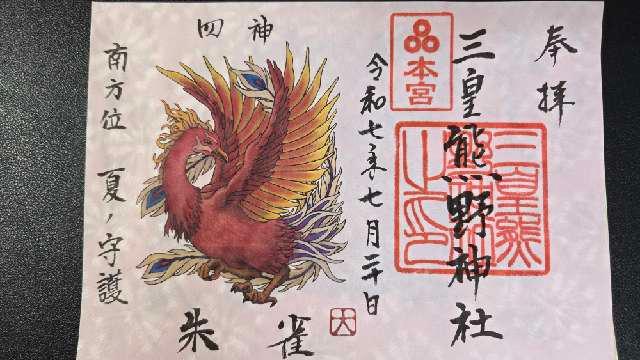 奉拝
三皇熊野神社
本宮
三皇熊野
之印
令和七年七月二十日
四神
朱雀
南方位 夏ノ守護